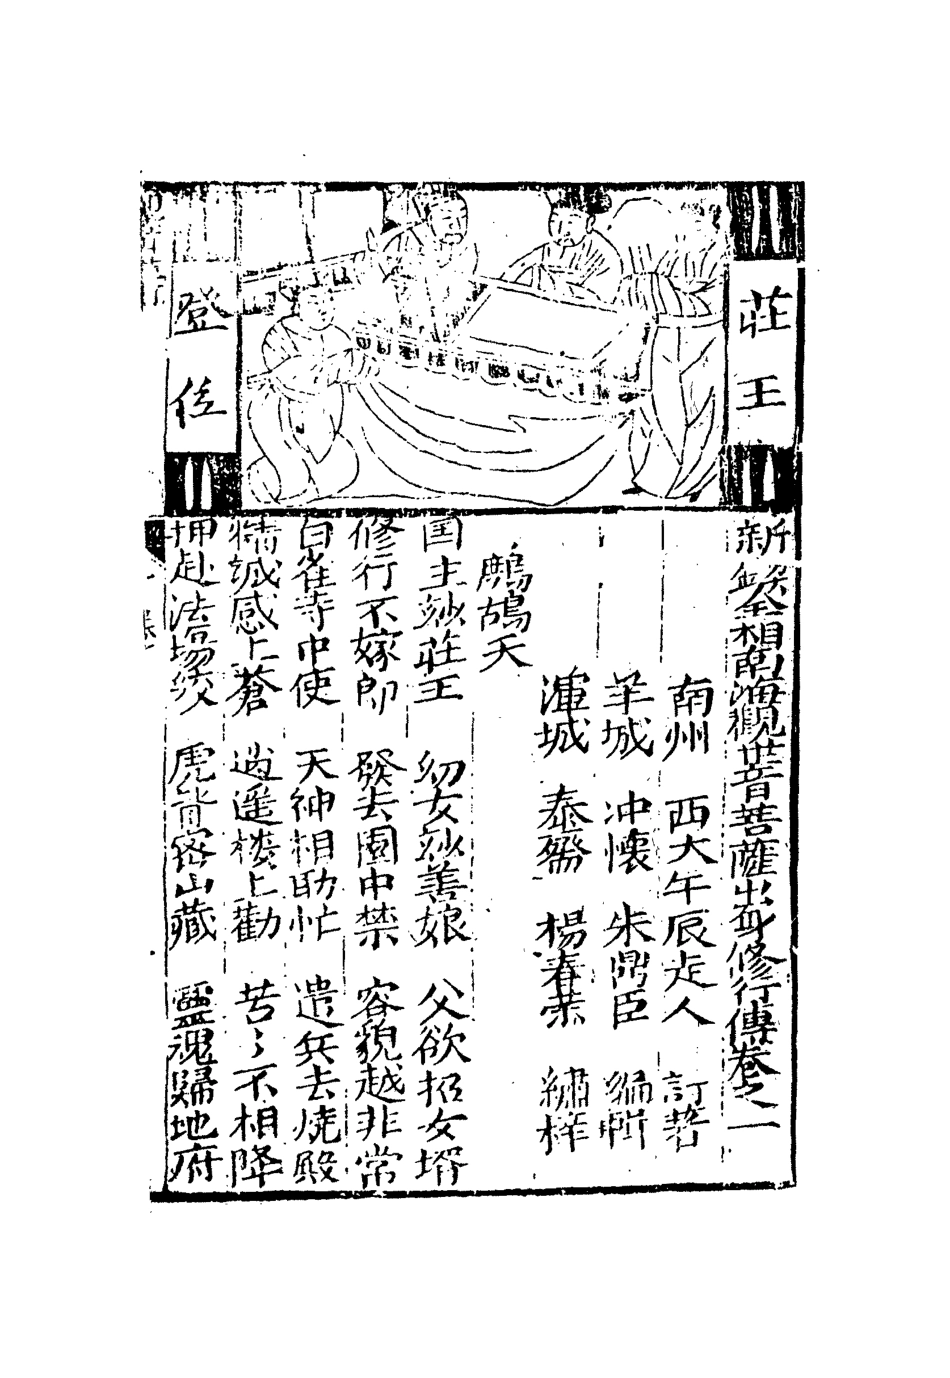 莊王
登位
新鋟全相南海觀世音菩薩出身修行傳卷之一
南州 西大午辰走人 訂著
羊城 冲懷 朱鼎臣 編輯
渾城 泰齋 楊春榮 繡梓
鷓鴣天
国主玅莊王 幼女玅善娘 父欲招女壻
修行不嫁郎 發去園中禁 容貌越非常
白雀寺中使 天神相助忙 遣兵去燒殿
精誠感上蒼 逍遥楼上勸 苦〻不相降
押赴法場絞 虎背密山藏 靈魂歸地府